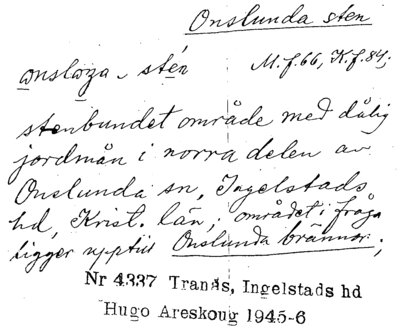 Onslunda sten
ơnsloʒa - stén M.f.66, K.f.84;
stenbundet område med dålig
jordmån i norra delen av
Onslunda sn, Ingelstads
hd, Krist. län; området i fråga
ligger upptill Onslunda brännor;
Nr 4337 Tranås, Ingelstads hd
Hugo Areskoug 1945-6